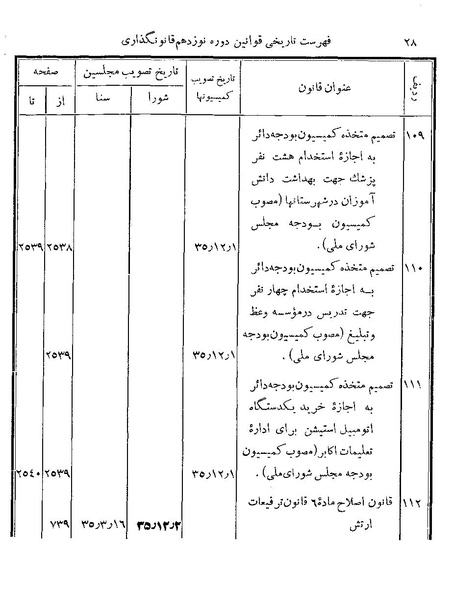 ۲۸
فهرست تاریخی قوانین دوره نوزدهم قانونگذاری
ردیف
عنوان قانون
تاریخ تصویب کمیسیونها
تاریخ تصویب مجلسین
شورا
سنا
صفحه
از
تا
۱۰۹
تصمیم متخذه کمیسیون بودجه دائر
به اجازهٔ استخدام هشت نفر
پزشک جهت بهداشت دانش
آموزان در شهرستانها (مصوب
کمیسیون بودجه مجلس
شورای ملی).
۳۵٫۱۲٫۱
۲۵۳۸
۲۵۳۹
۱۱۰
تصمیم متخذه کمیسیون بودجه دائر
به اجازهٔ استخدام چهار نفر
جهت تدریس در مؤسسه وعظ
و تبلیغ (مصوب کمیسیون بودجه
مجلس شورای ملی).
۳۵٫۱۲٫۱
۲۵۳۹
۱۱۱
تصمیم متخذه کمیسیون بودجه دائر
به اجازهٔ خرید یکدستگاه
اتومبیل استیشن برای ادارهٔ
تعلیمات اکابر (مصوب کمیسیون
بودجه مجلس شورای ملی).
۳۵٫۱۲٫۱
۲۵۳۹
۲۵۴۰
۱۱۲
قانون اصلاح مادهٔ ۶ قانون ترفیعات
ارتش
۳۵٫۱۲٫۲
۳۵٫۳٫۱۶
۷۳۹